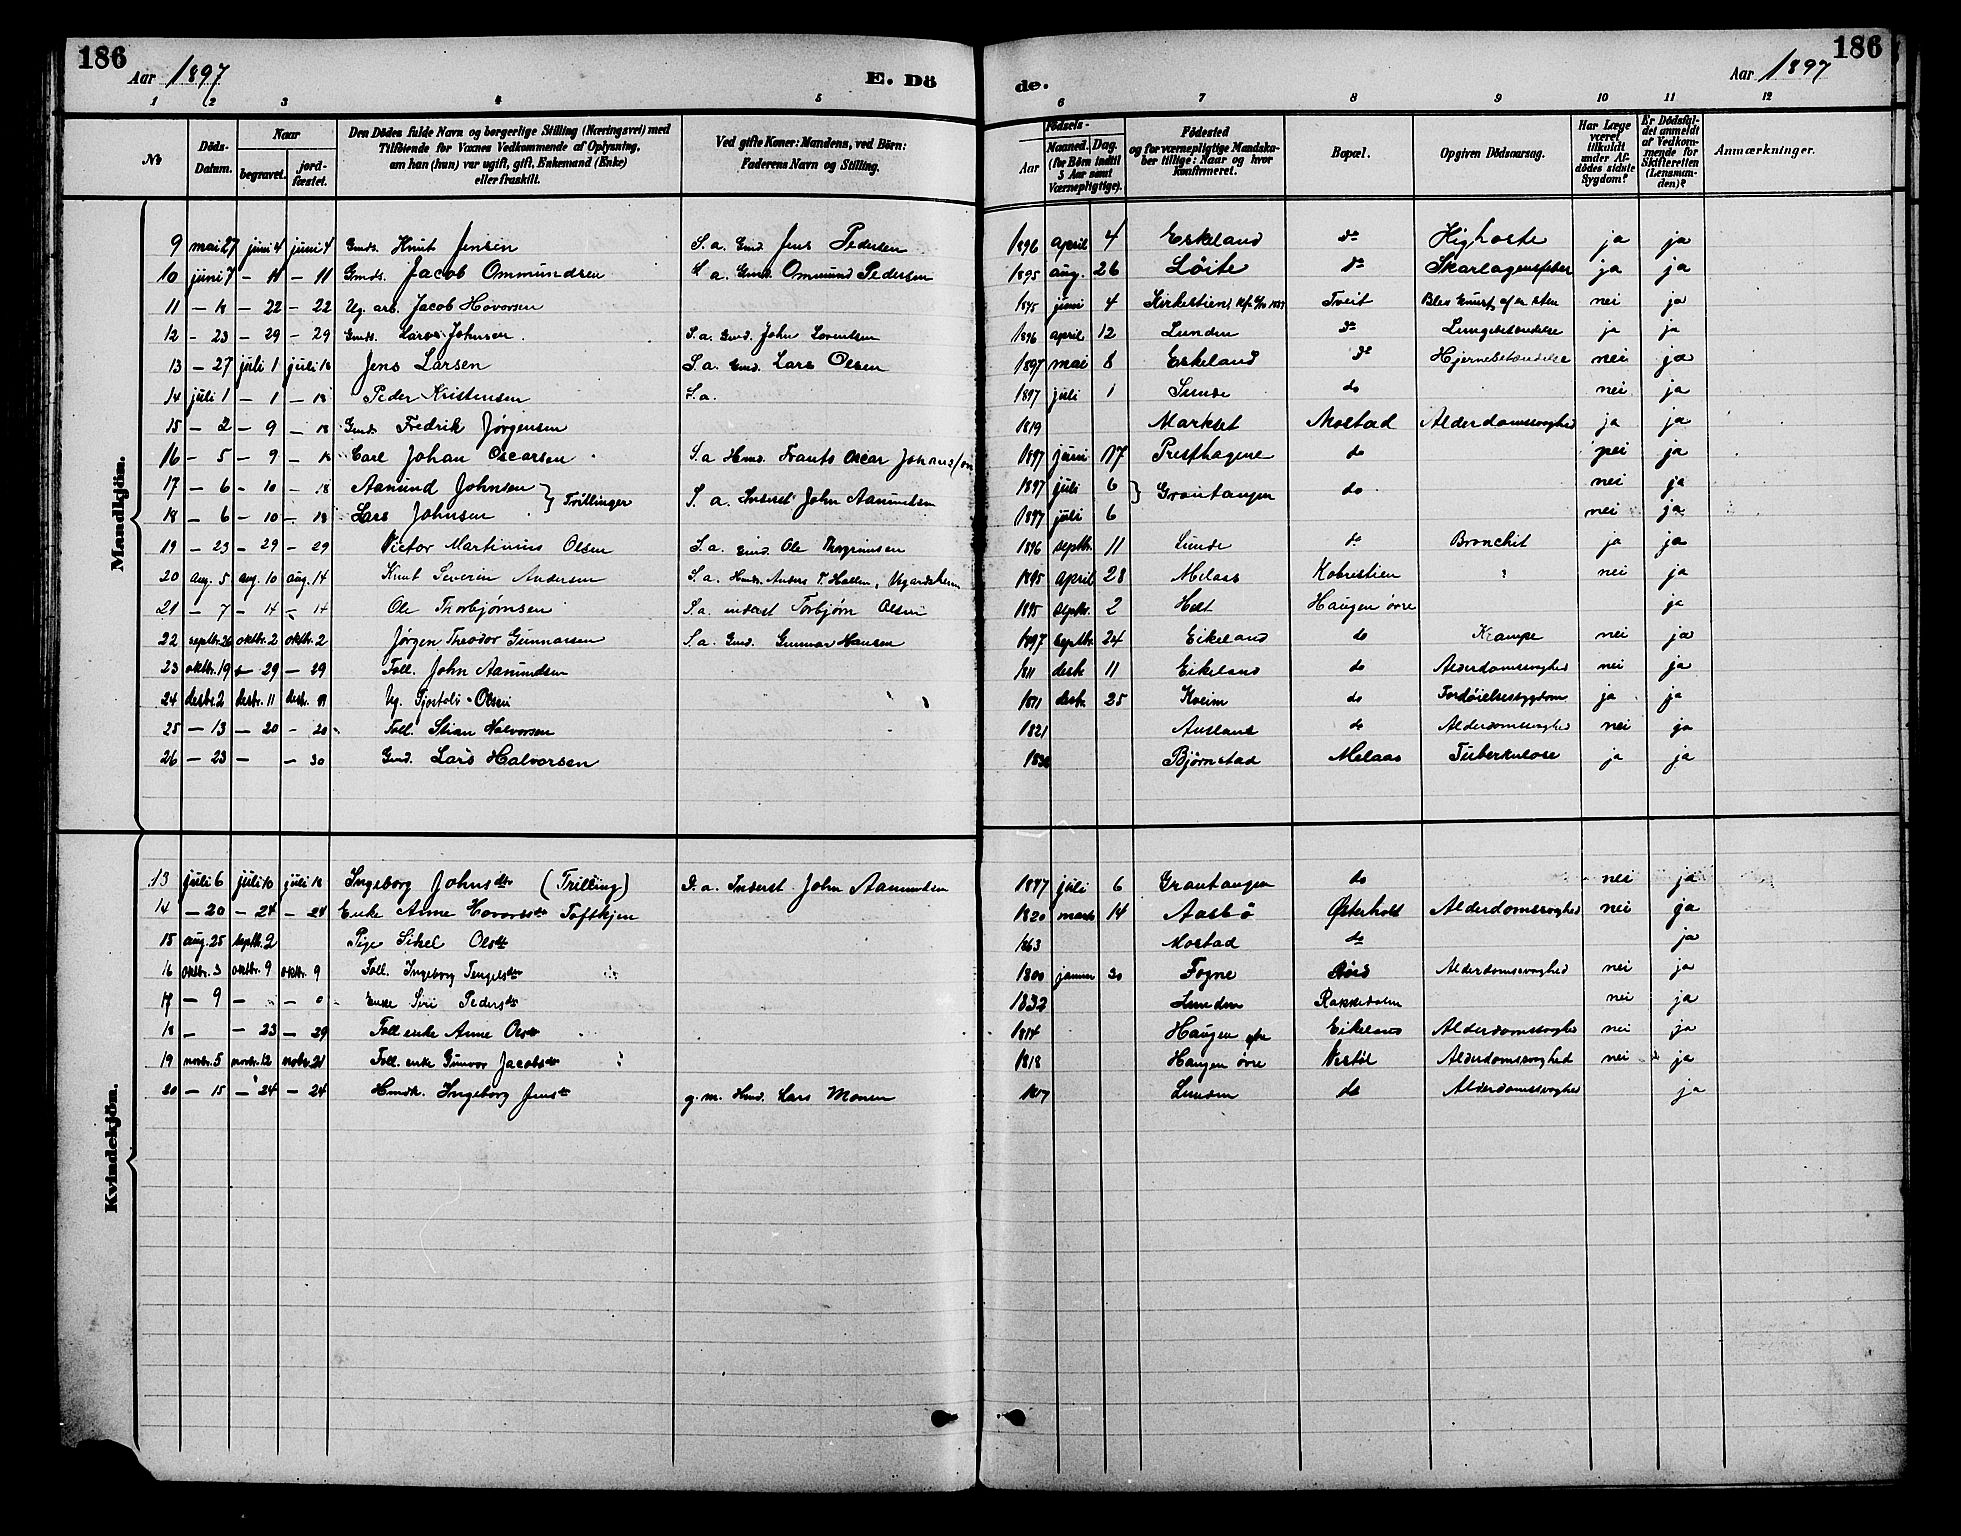 186
Aar 1897
E. Dö
de.
Aar 1897
186
1 2 3 4 5 6 7 8 9 10 11 12
No
Döds-Datum.
Naar
begravet.
jord-fæstet.
Den Dödes fulde Navn og borgerlige Stilling (Næringsvei) med
Tilföiende for Voxnes Vedkommende af Oplysning,
om han (hun) var ugift, gift, Enkemand (Enke)
eller fraskilt.
Ved gifte Koner: Mandens, ved Börn:
Faderens Navn og Stilling.
Födsels-
Aar
Maaned. Dag.
(for Börn indtil
5 Aar samt
Værnepligtige).
Födested
og for værnepligtige Mandska-
ber tillige: Naar og hvor
konfirmeret.
Bopæl.
Opgiven Dödsaarsag.
Har Læge
været
tilkaldt
under Af-
dödes sidste
Sygdom?
Er Dödsfal-
det anmeldt
af Vedkom-
mende for
Skifteretten
(Lensman-
den)?
Anmærkninger.
Mandkjön.
9 mai 27 juni 4 juni 4 Gmds. Knut Jensen S. a. Gmd. Jens Pedersen 1896 april 4 Eskeland do Kighoste ja ja
10 juni 7 – 11 – 11 Gmds. Jacob Ommundsen S. a. Gmd. Ommund Pedersen 1895 aug. 26 Löite do Skarlagensfeber ja ja
11 – 18 – 22 – 22 Ug. arb. Jacob Hovorsen 1875 juni 4 Kirkestien Tveit nei ja
12 – 23 – 29 – 29 Gmds. Lars Johnsen S. a. Gmd. John Lorentsen 1896 april 12 Lunden do Lungebetændelse ja ja
13 – 27 juli 1 juli 18 Jens Larsen S. a. Gmd. Lars Olsen 1897 mai 8 Eskeland do Hjernebetændelse nei ja
14 juli 1 – 1 – 18 Peder Kristensen S. a. 1897 juli 1 Sunde do nei ja
15 – 2 – 9 – 18 Gmd. Fredrik Jørgensen 1819 Markset Mostad Alderdomssvaghed ja ja
16 – 5 – 9 – 18 Carl Johan Oscarsen S. a. Hmd. Frants Oscar Johansson 1897 juni 17 Presthagene do nei ja
17 – 6 – 10 – 18 Aanund Johnsen } Trillinger S. a. Inderst John Aanundsen 1897 juli 6 } Grautangen do nei ja
18 – 6 – 10 – 18 Lars Johnsen 1897 juli 6 nei ja
19 – 23 – 29 – 29 Victor Martinius Olsen S. a. Gmd. Ole Thorgrimsen 1896 septbr. 11 Lunde do Bronchit ja ja
20 aug. 5 aug. 10 aug. 14 Knut Severin Andersen S. a. Hmds. Anders T. Hallen, Vegardsheien 1895 april 28 Melaas Kobrestien ? nei ja
21 – 7 – 14 – 14 Ole Thorbjørnsen S. a. inderst Torbjørn Olsen 1895 septbr. 2 Holt Haugen övre ja
22 septbr. 26 oktbr. 2 oktbr. 2 Jørgen Theodor Gunnarsen S. a. Gmd. Gunnar Hansen 1897 septbr. 24 Eikeland do Krampe nei ja
23 oktbr. 19 – 29 – 29 Foll. John Aanundsen 1811 desbr. 11 Eikeland do Alderdomssvaghed nei ja
24 desbr. 2 desbr. 11 desbr. 11 Ug. Gjostolv Olsen 1871 desbr. 25 Kveim do Fordöielsessygdom ja ja
25 – 13 – 20 – 20 Foll. Stian Halvorsen 1821 Ausland do Alderdomssvaghed nei ja
26 – 23 – – 30 Gmd. Lars Halvorsen Bjørnstad Melaas Tuberkulose ja ja
Kvindekjön.
13 juli 6 juli 10 juli 18 Ingeborg Johnsdtr (Trilling) D. a. Inderst John Aanundsen 1897 juli 6 Grautangen do nei ja
14 – 20 – 24 – 24 Enke Anne Hovorsdtr Toftkjen 1820 marts 14 Aasbö Österholt Alderdomssvaghed nei ja
15 aug. 25 septbr. 2 Pige Sikel Olsdtr 1863 Mostad do ja
16 oktbr. 3 oktbr. 9 oktbr. 9 Foll. Ingeborg Tengelsdtr 1800 januar 30 Fogne Röed Alderdomssvaghed nei ja
17 – 9 – – Enke Siri Pedersdtr 1832 Lunden Rakkedalen nei ja
18 – – 23 – 29 Foll enke Anne Olsdtr 1814 Haugen övre Eikeland Alderdomssvaghed nei ja
19 novbr. 5 novbr. 12 novbr. 21 Foll. enke Gunvor Jacobsdtr 1818 Haugen övre Vestöl Alderdomssvaghed nei ja
20 – 15 – 24 – 24 Hmdk. Ingeborg Jensdtr g. m. Hmd. Lars Monen 1817 Lunden do Alderdomssvaghed ja